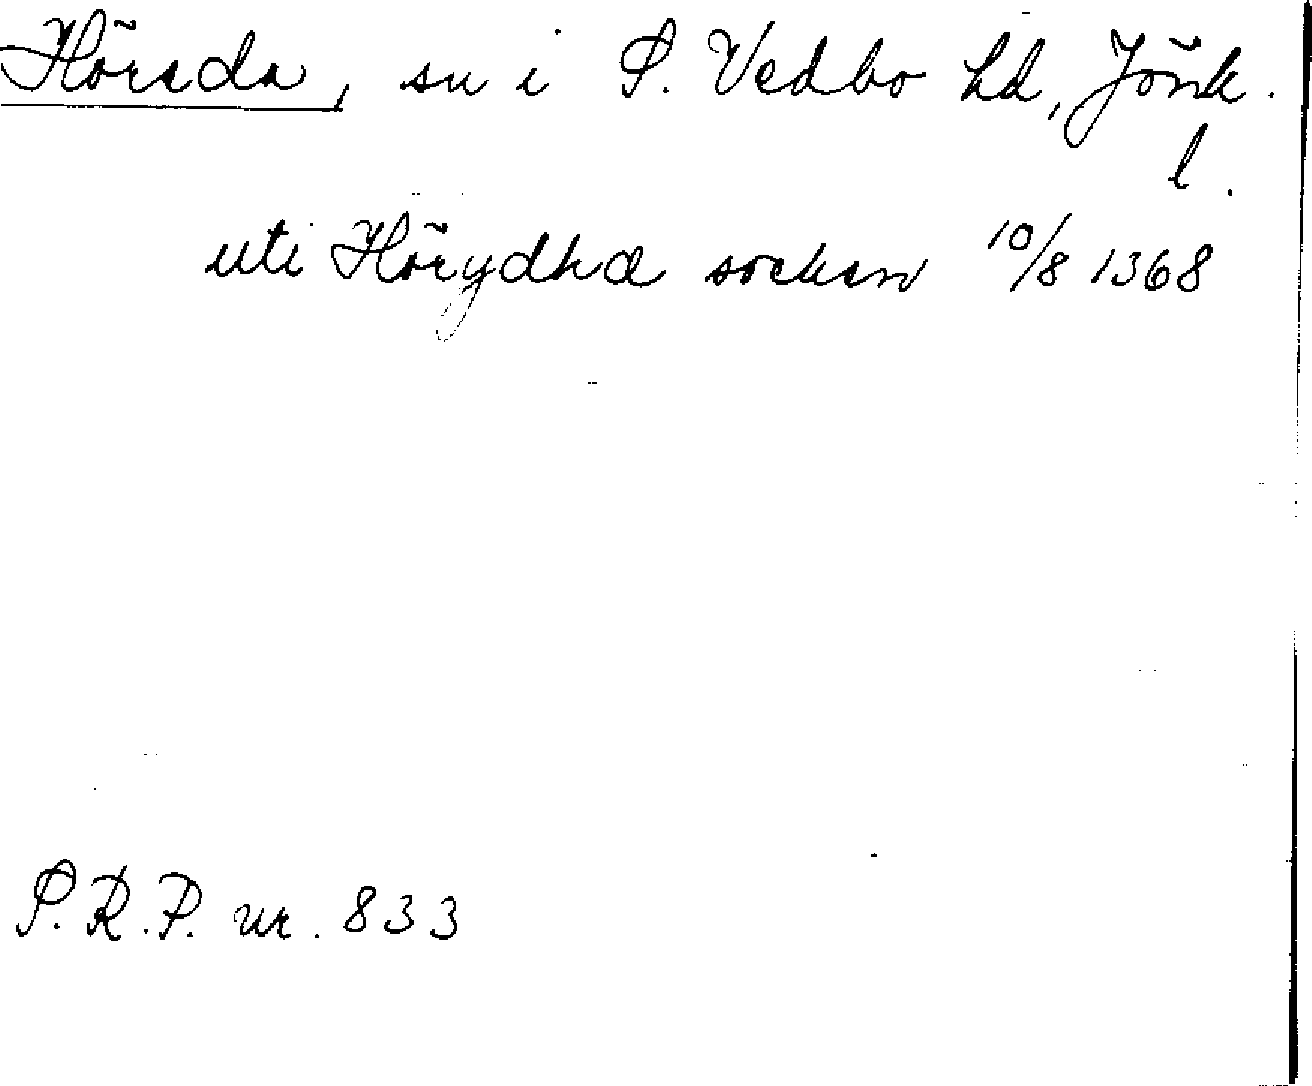 Höreda, sn i S. Vedbo hd, Jönk.
l.
uti Hörydha socken 10/8 1368
S.R.P. nr. 833